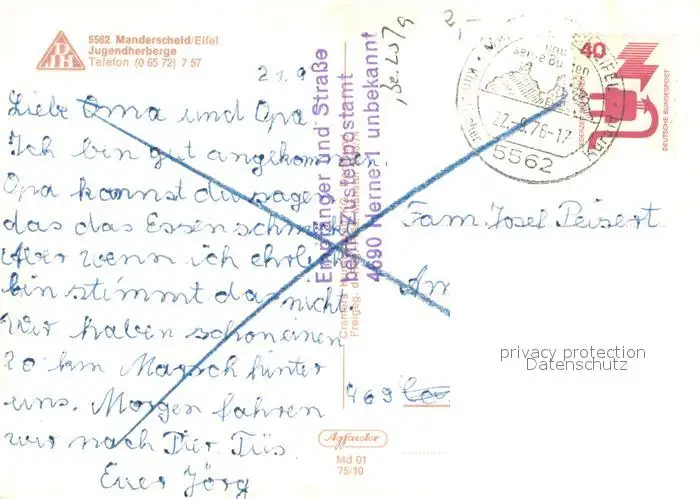 5562 Manderscheid/Eifel
Jugendherberge
Telefon (0 65 72) 7 57
21.9
Liebe Oma und Opa.
Ich bin gut angekommen.
Opa kannst du sagen
das das Essen schmeckt
Aber wenn ich ehrlich
bin stimmt das nicht.
Wir haben schon einen
20 km Marsch hinter
uns. Morgen fahren
wir nach
Euer Jörg
Empfänger und Straße
beim Zustellpostamt
4690 Herne 1 unbekannt
Cramers
Freigeg. d.
2,-
40
DEUTSCHE BUNDESPOST
JEDERZEIT
und
seine Burgen
22.-9.76-17
5562
Fam. Josef Peisert
Am
469
privacy protection
Datenschutz
Agfacolor
Md 01
75/10